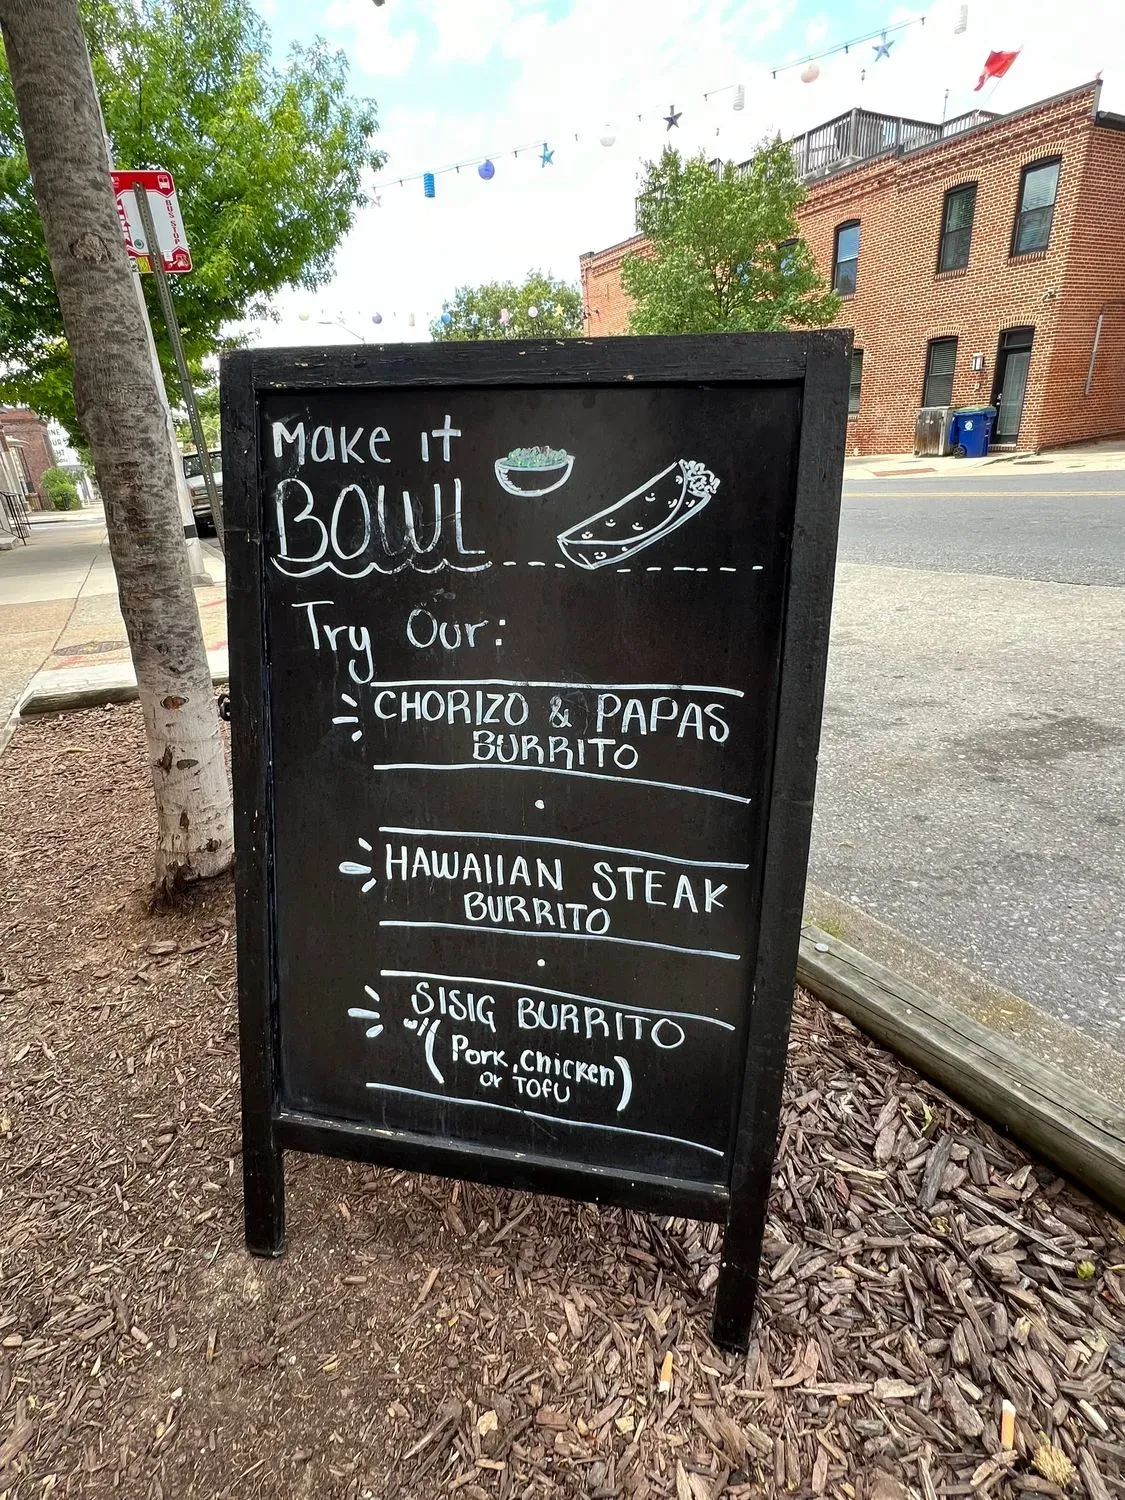 BUS STOP
Make it
BOWL
Try Our:
CHORIZO & PAPAS
BURRITO
HAWAIIAN STEAK
BURRITO
SISIG BURRITO
w/ (Pork, Chicken)
or TOFU